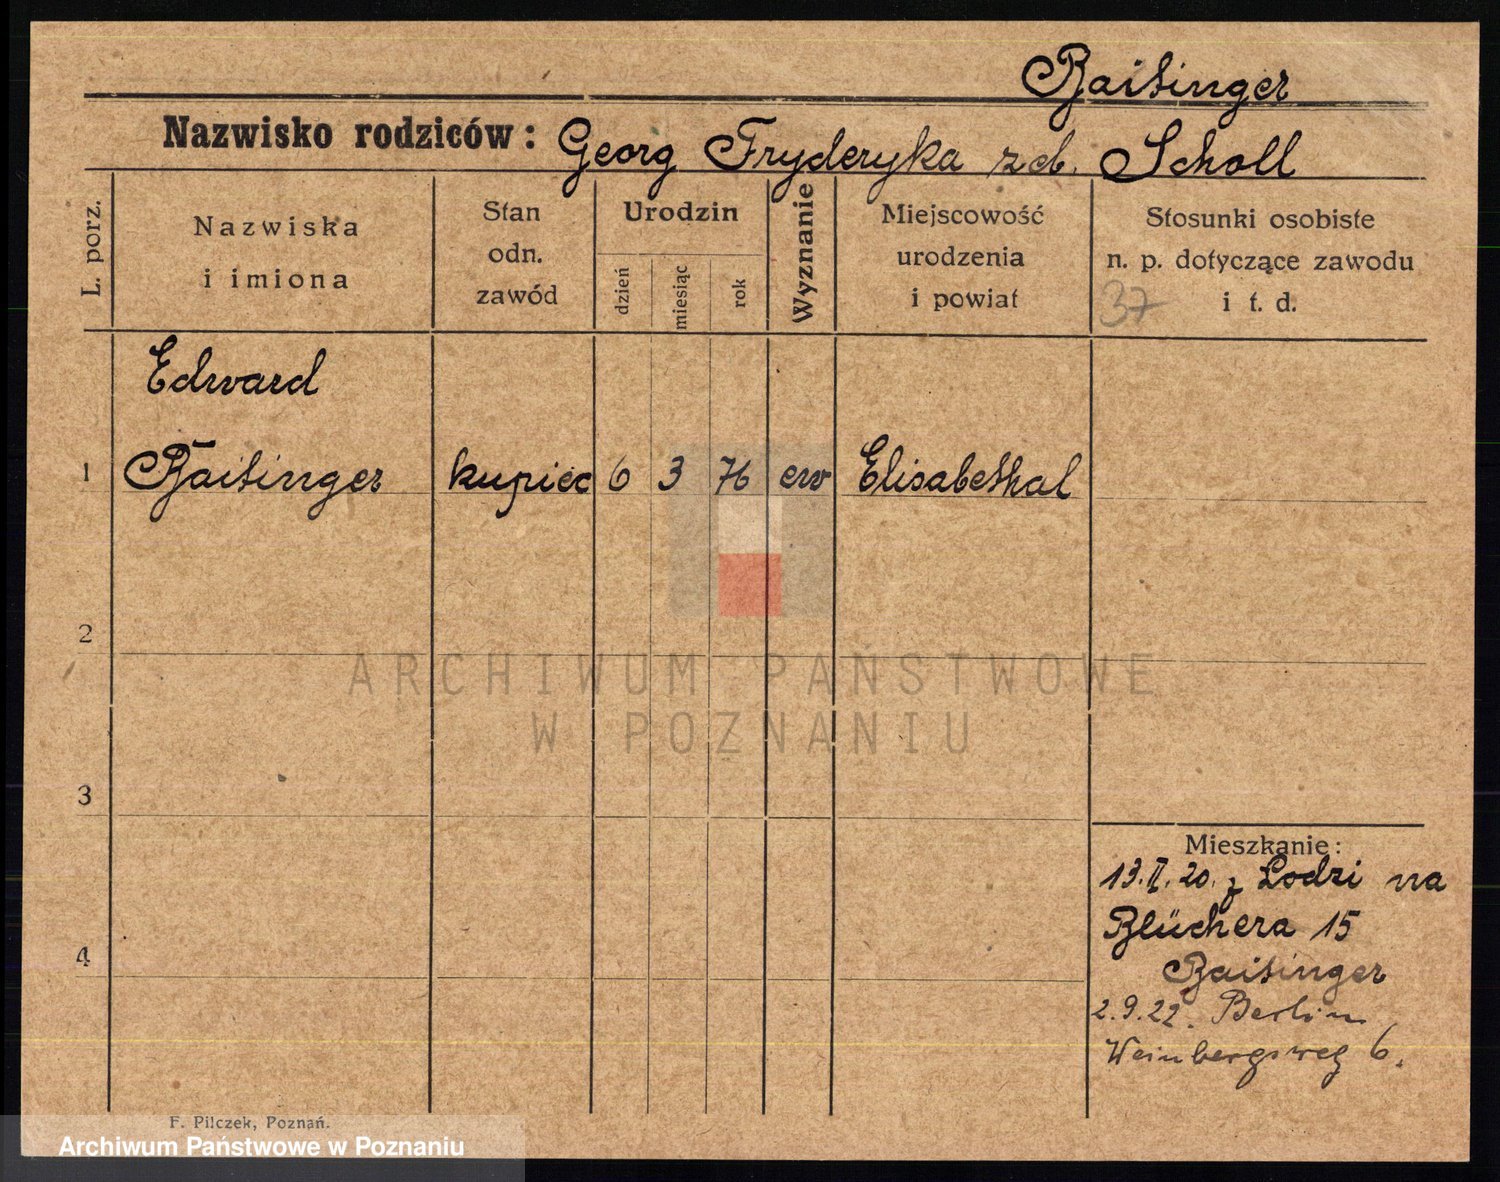 Baisinger
Nazwisko rodziców: Georg Fryderyka zd. Scholl
L. porz.
Nazwiska
i imiona
Stan
odn.
zawód
Urodzin
dzień
miesiąc
rok
Wyznanie
Miejscowość
urodzenia
i powiat
Stosunki osobiste
n. p. dotyczące zawodu
i t. d.
37
Edward
1 Baisinger kupiec 6 3 76 ew Elisabethal
2
3
4
Mieszkanie:
13.II.20. z Lodzi na
Blüchera 15
Baisinger
2.9.22. Berlin
Weinbergsweg 6.
F. Pilczek, Poznań.
ARCHIWUM PAŃSTWOWE
W POZNANIU
Archiwum Państwowe w Poznaniu